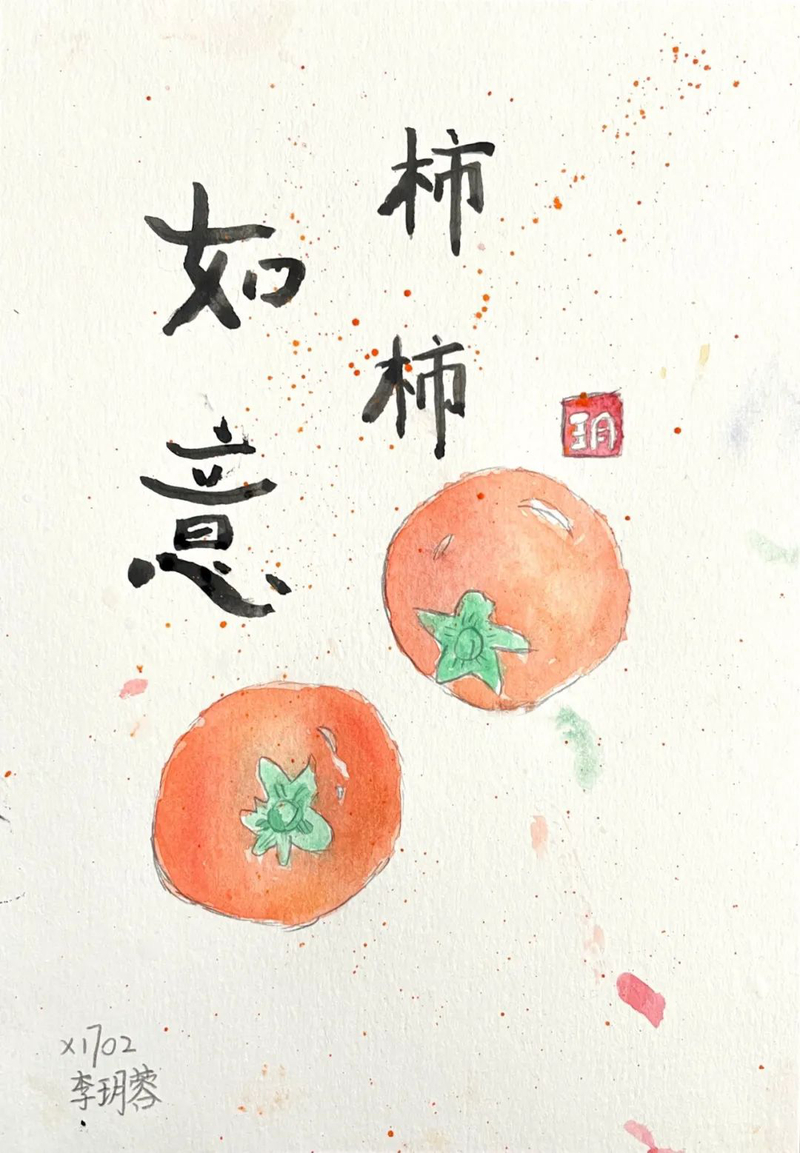 柿柿
如意
玥
x1702
李玥蓉